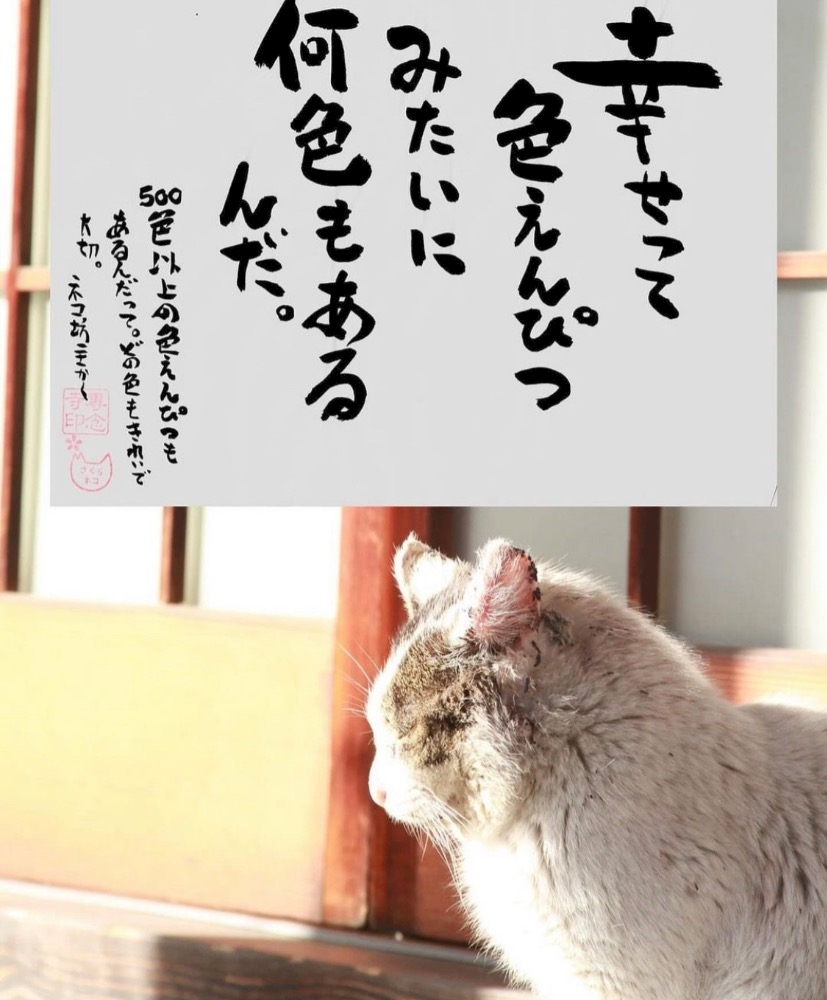 幸せって
色えんぴつ
みたいに
何色もある
んだ。
500色以上の色えんぴつも
あるんだって。どの色もきれいで
大切。 ネコ坊主かく
専念
寺印
さくら
ネコ